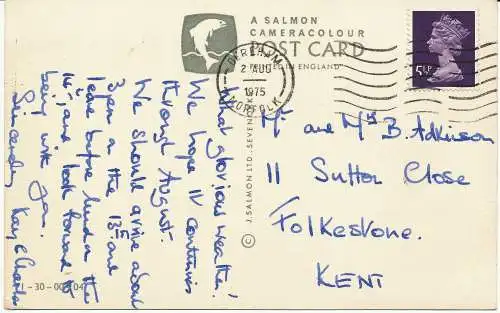 A SALMON
CAMERACOLOUR
POST CARD
PRINTED IN ENGLAND
DEREHAM
2 AUG
1975
NORFOLK
5½P
What glorious weather!
We hope it continues
through August.
We should arrive about
3pm on the 13th and
leave before lunch on the
16th, and look forward to
being with you.
Sincerely Kay & Charles
© J. SALMON LTD., SEVENOAKS
Mr and Mrs B. Adkinson
11 Sutton Close
Folkestone.
KENT